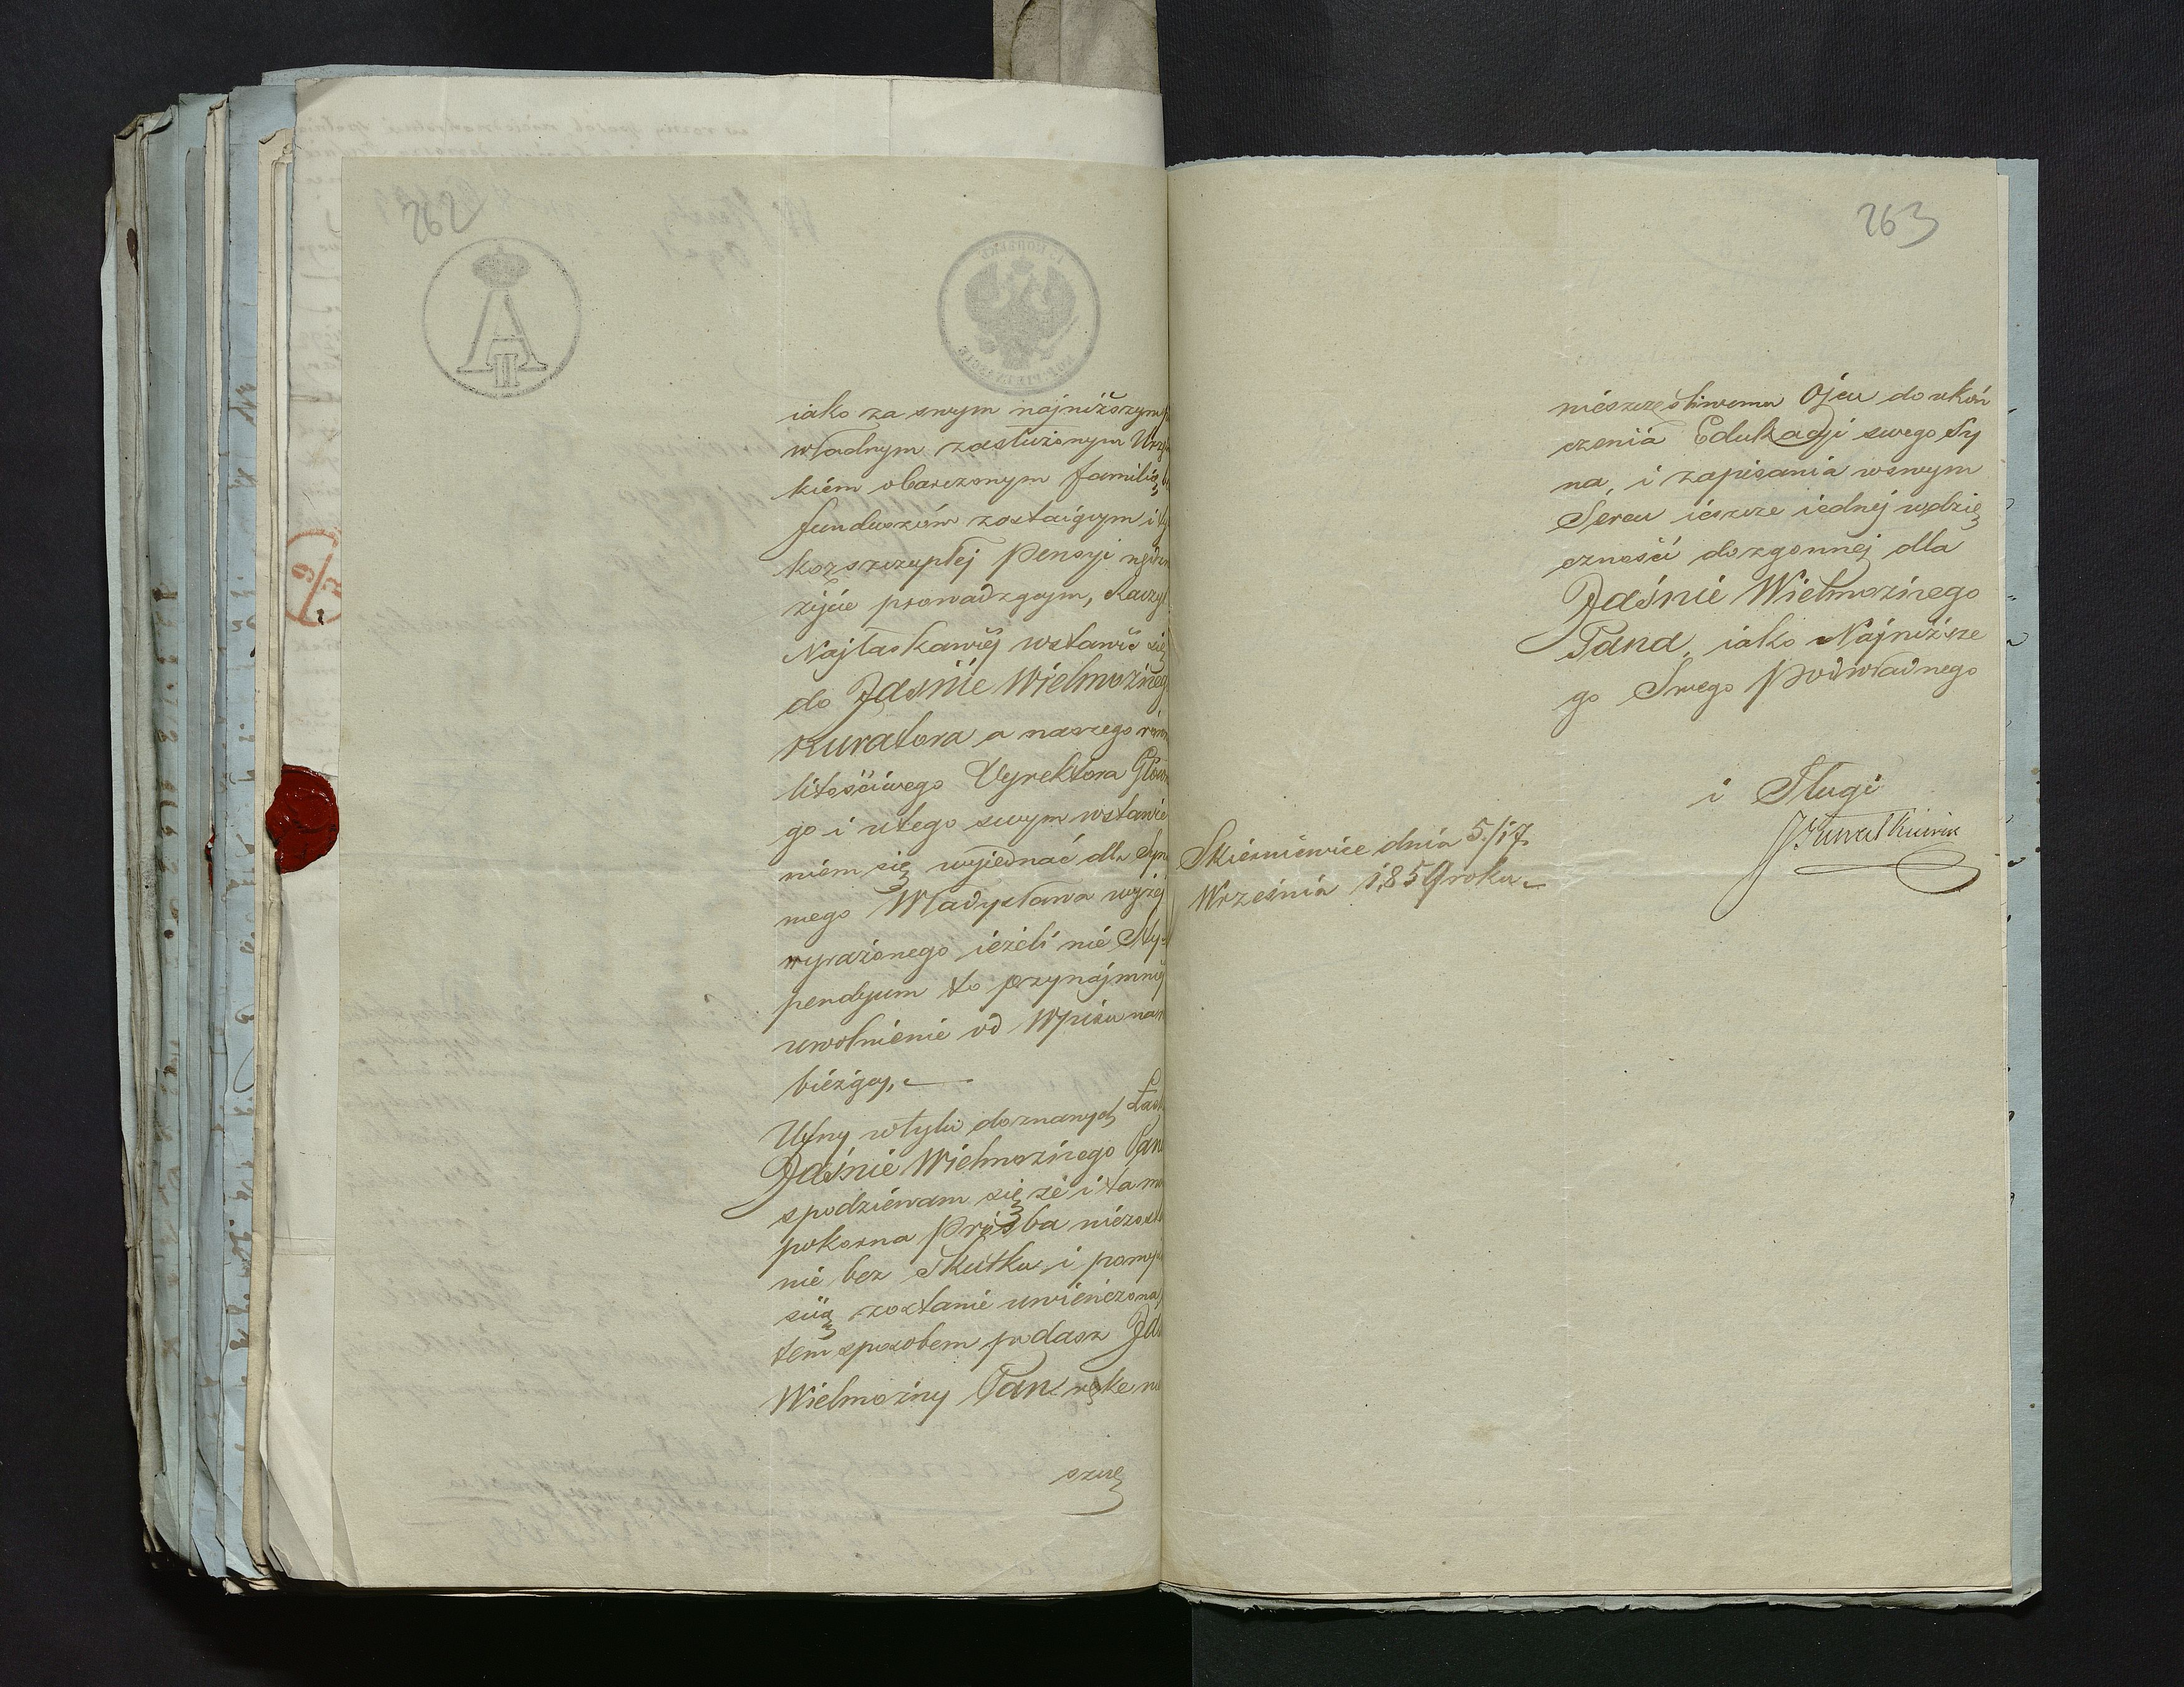 262
iako za swym najniższym
władnym zasłużonym
kiem obarczonym familią
funduszów zostaiącym i
szczupłej Pensyi
życie prowadzącym, Raczył
Najłaskawiej wstawić się
do Jaśnie Wielmożneg
Kuratora a naszego
litościwego Dyrektora Głów
go i utego swym wstawie
niem się wyjednać dla Syna
mego Władysława wyżej
wyrażonego ieżeli nie Sty-
pendyum to przynajmniej
uwolnienie od Wpisu na
bieżący.
Ufny wtylu doznanych Łask
Jaśnie Wielmożnego Pana
spodziewam się że i ta
pokorna Prośba niezosta
nie bez Skutku, i pomy
zostanie uwieńczona,
tem sposobem podasz Jaś
Wielmożny Pan rękę
263
nieszczęśliwemu Ojcu do ukoń
czenia Edukacyi swego Sy
na, i zapisania wswym
Sercu ieszcze iednej wdzię
czności dozgonnej dla
Jaśnie Wielmożnego
Pana, iako Najniższe
go Swego Podwładnego
i Sługi
Skierniewice dnia 5/17.
Września 1859 roku